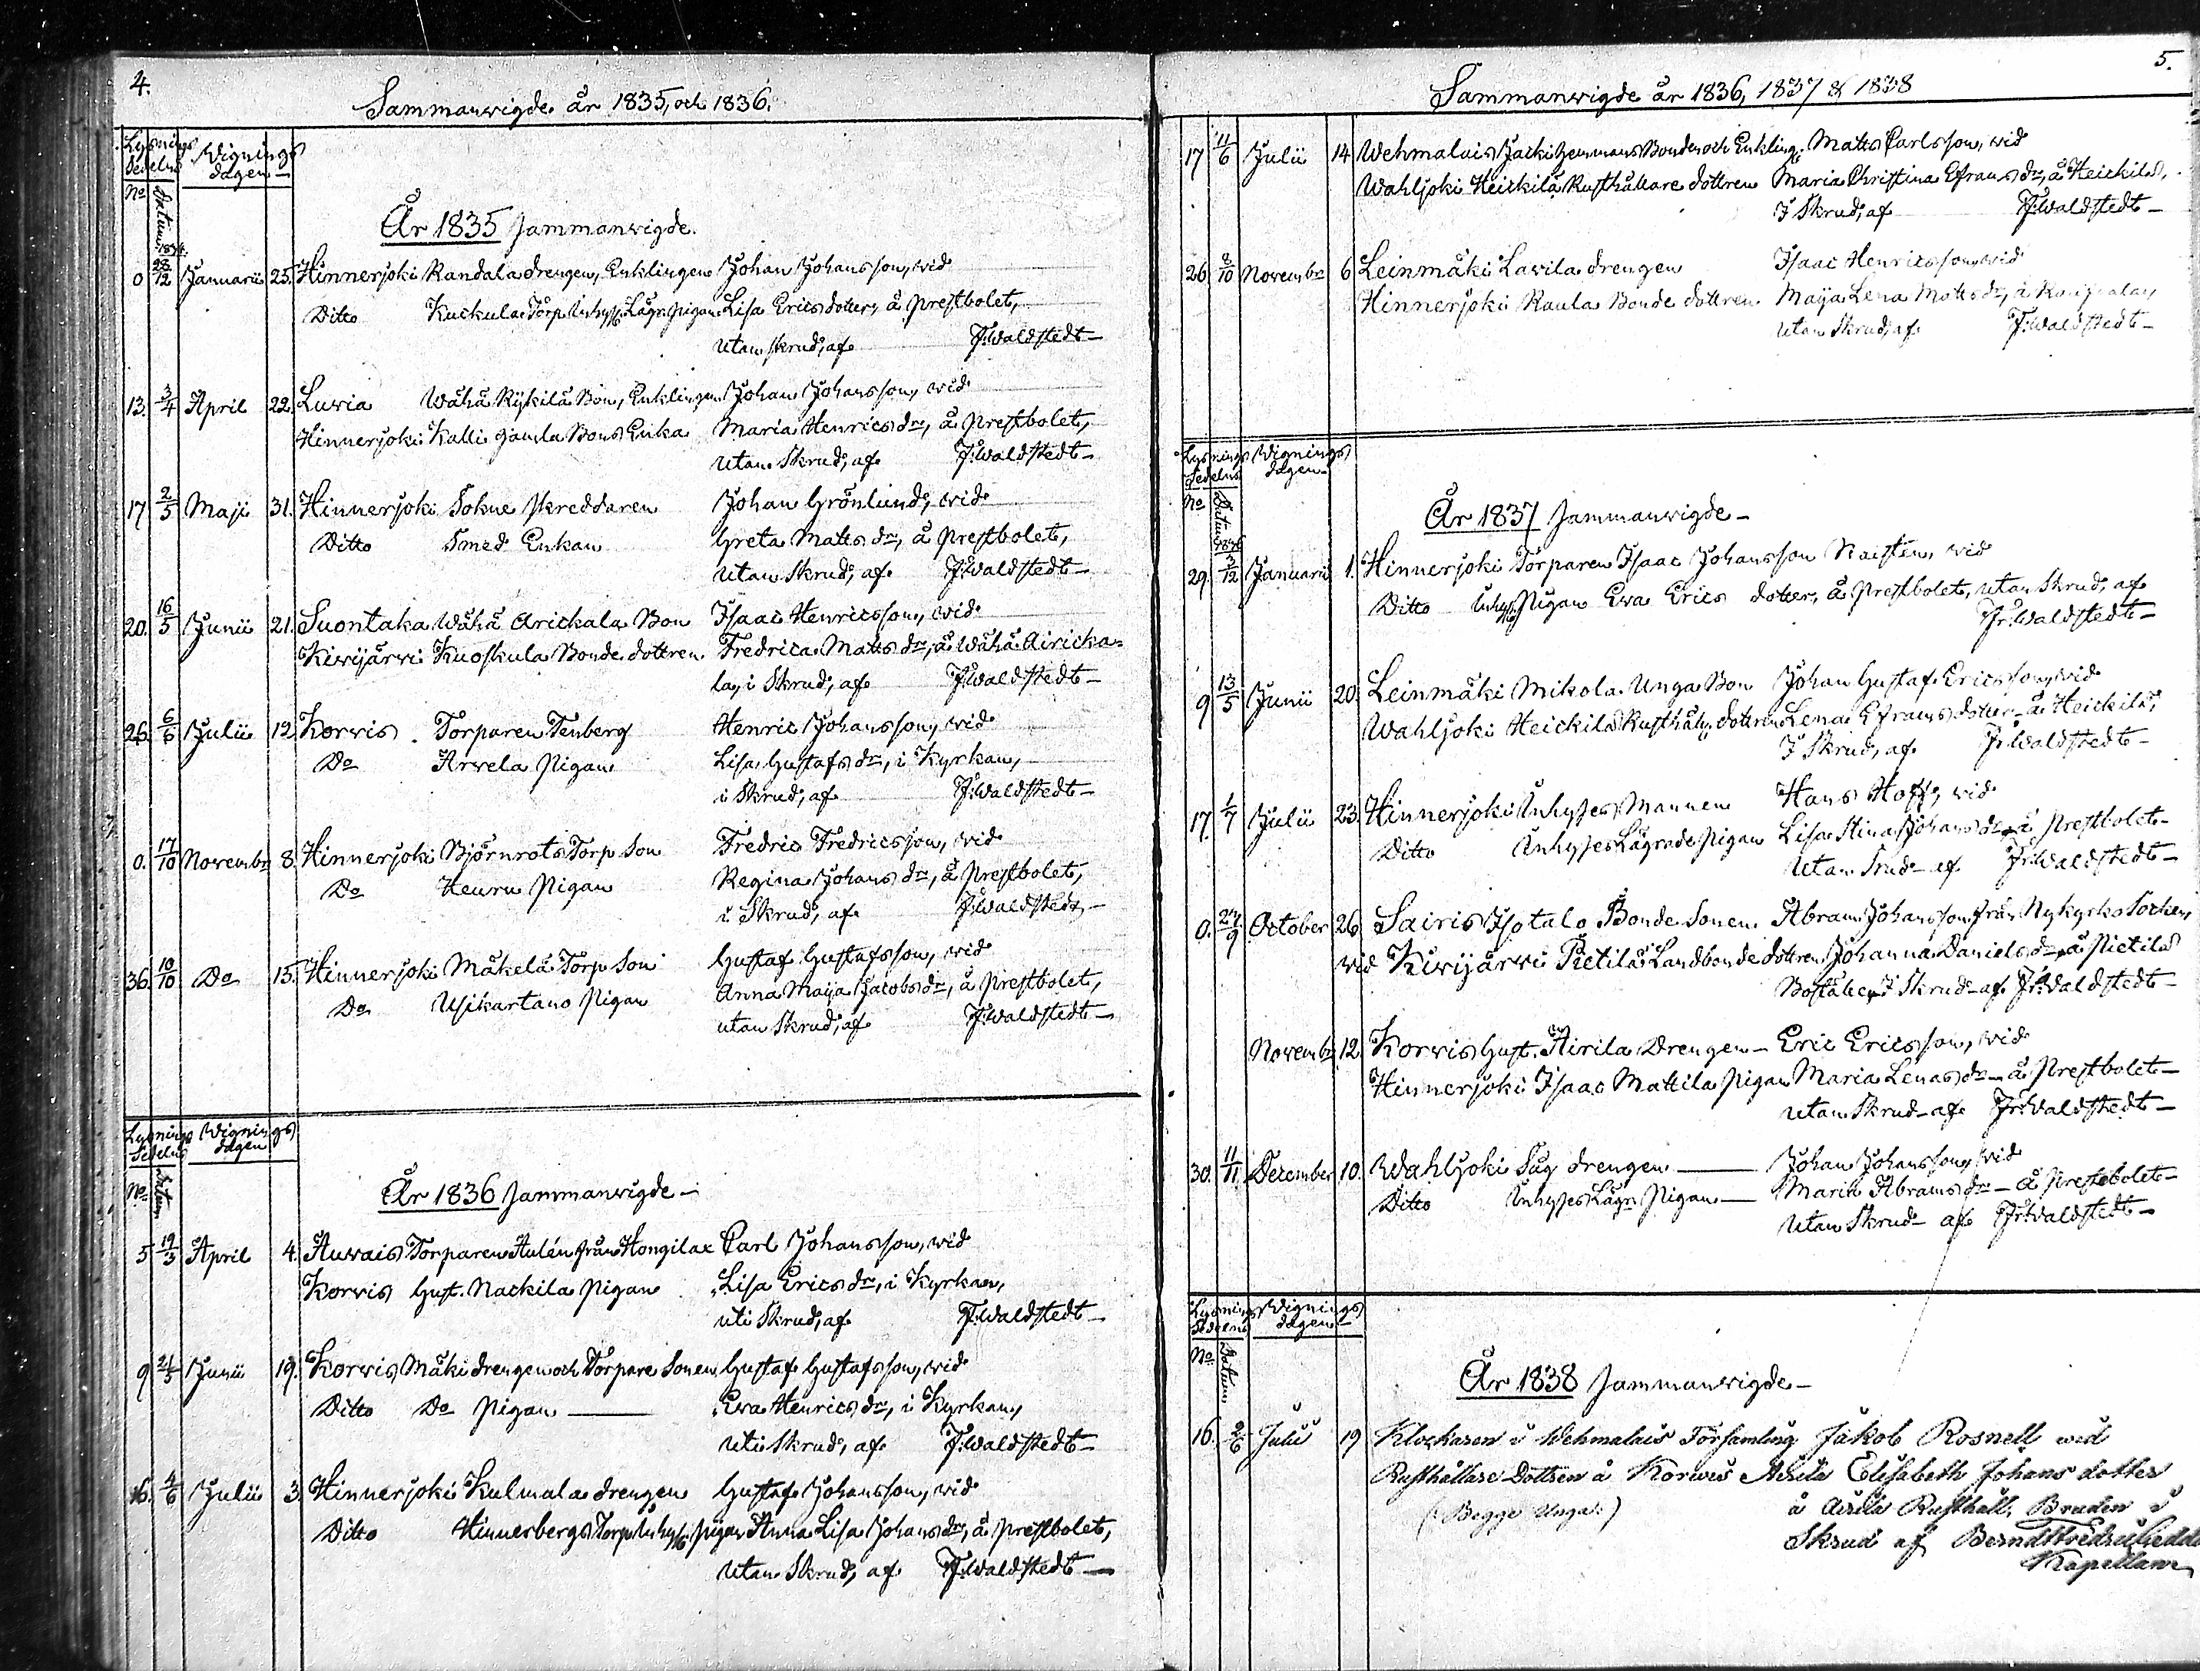 4.
Sammanwigde år 1835, och 1836.
Lysnings Sedelns
Wignings dagen
No Datum
År 1835 Sammanwigde.
1834.
0 28/12 Januarii 25. Hinnerjoki Randala drengen, Enklingen Johan Johansson, wid
Ditto Kuckula Torp Inhys. Lägr. Pigan Lisa Ericsdotter, å Prestbolet,
utan skrud, af F: Waldstedt
13. 3/4 April 22. Luwia Wähä Rykilä Bon, Enklingen Johan Johansson, wid
Hinnerjoki Kalli gamla Bons Enka Maria Henricsdr, å Prestbolet,
utan Skrud, af F: Waldstedt
17 2/5 Maji 31. Hinnerjoki Sokne skreddaren Johan Grönlund, wid
Ditto Smed Enkan Greta Matts dr, å Prestbolet,
utan Skrud, af F: Waldstedt
20. 16/5 Junii 21. Suontaka Wähä Arickala Bon Isaac Henricsson, wid
Kiwijärwi Kuoskula Bonde dottren Fredrica Matts dr, å Wähä Airicka=
la, i Skrud, af F: Waldstedt
26. 6/6 Julii 12 Korwis Torparen Tenberg Henric Johansson, wid
Do Arwela Pigan Lisa Gustafs dr, i Kyrkan,
i Skrud, af F: Waldstedt
0. 17/10 Novembr 8. Hinnerjoki Björnrots Torp Son Fredric Fredricsson, wid
Do Heuru Pigan Regina Johans dr, å Prestbolet,
i Skrud, af F: Waldstedt
36. 10/10 Do 15. Hinnerjoki Mäkelä Torp Son Gustaf Gustafsson, wid
Do Usikartano Pigan Anna Maija Jacobs dr, å Prestbolet,
utan Skrud, af F: Waldstedt
Lysnings Sedelns
Wignings dagen
No Datum
År 1836 Sammanwigde
5 19/3 April 4. Auwais Torparen Aulén från Hongilax Carl Johansson, wid
Korwis Gust. Nackila Pigan Lisa Erics dr, i Kyrkan,
uti Skrud, af F: Waldstedt
9 21/5 Junii 19. Korwis Mäki drengen och Torpare Sonen Gustaf Gustafsson, wid
Ditto Do Pigan Ewa Henrics dr, i Kyrkan,
uti Skrud, af F: Waldstedt
16. 4/6 Julii 3. Hinnerjoki Kulmala drengen Gustaf Johansson, wid
Ditto Hinnerbergs Torp Inhys. Pigan Anna Lisa Johans dr, å Prestbolet,
utan Skrud, af F: Waldstedt
5.
Sammanwigde år 1836, 1837 & 1838
17 11/6 Julii 14 Wehmalais Jacki Hemmans Bonden och Enkling. Matts Carlsson, wid
Wahljoki Heickilä Rusthållare dottren Maria Christina Efraims dr, å Heickilä,
I Skrud, af F: Waldstedt
26. 8/10 Novembr 6 Leinmäki Lawila drengen Isaac Henricsson, wid
Hinnerjoki Raula Bonde dottren Maija Lena Matts dr, å
utan Skrud, af F: Waldstedt
Lysnings Sedelns
Wignings dagen
No Datum
År 1837 Sammanwigde
1836
29. 3/12 Januarii 1. Hinnerjoki Torparen Isaac Johansson Raisten, wid
Ditto Inhys. Pigan Ewa Erics dotter, å Prestbolet, utan Skrud, af
Fr: Waldstedt
9 13/5 Junii 20. Leinmäki Mikola Unga Bon Johan Gustaf Ericsson, wid
Wahljoki Heickilä Rusthåll. dottren Lena Efraims dotter å Heickilä,
I Skrud, af Fr: Waldstedt
17. 1/7 Julii 23 Hinnerjoki Inhyses Mannen Hans Hoff, wid
Ditto Inhyses Lägrade Pigan Lisa Stina Johans dr å Prestbolet
utan Srud af Fr: Waldstedt
0. 27/9 October 26 Sairis Isotalo Bonde Sonen Abram Johansson från Nykyrko Socken,
wid Kiwijärwi Pietilä Landbonde dottren Johanna Daniels dr å Pietilä
Boställe, I Skrud af Fr: Waldstedt
Novembr 12 Korwis Gust. Airila Drengen Eric Ericsson, wid
Hinnerjoki Isaac Mattila Pigan Maria Lenas dr å Prestbolet
utan Skrud af Fr: Waldstedt
30. 11/11 December 10. Wahljoki Såg drengen Johan Johansson, wid
Ditto Inhyses Lägr. Pigan Maria Abrams dr å Prestbolet
utan Skrud af Fr: Waldstedt
Lysnings Sedelns
Wignings dagen
No Datum
År 1838 Sammanwigde
16. 2/6 Juli 19 Klockaren i Wehmalais Församling Jakob Rosnell wid
Rusthållare Dottren å Korwis Airila Elisabeth Johans dotter
(: Begge Unga:) å Airila Rusthåll. Bruden i
Skrud af Berndt
Kapellan